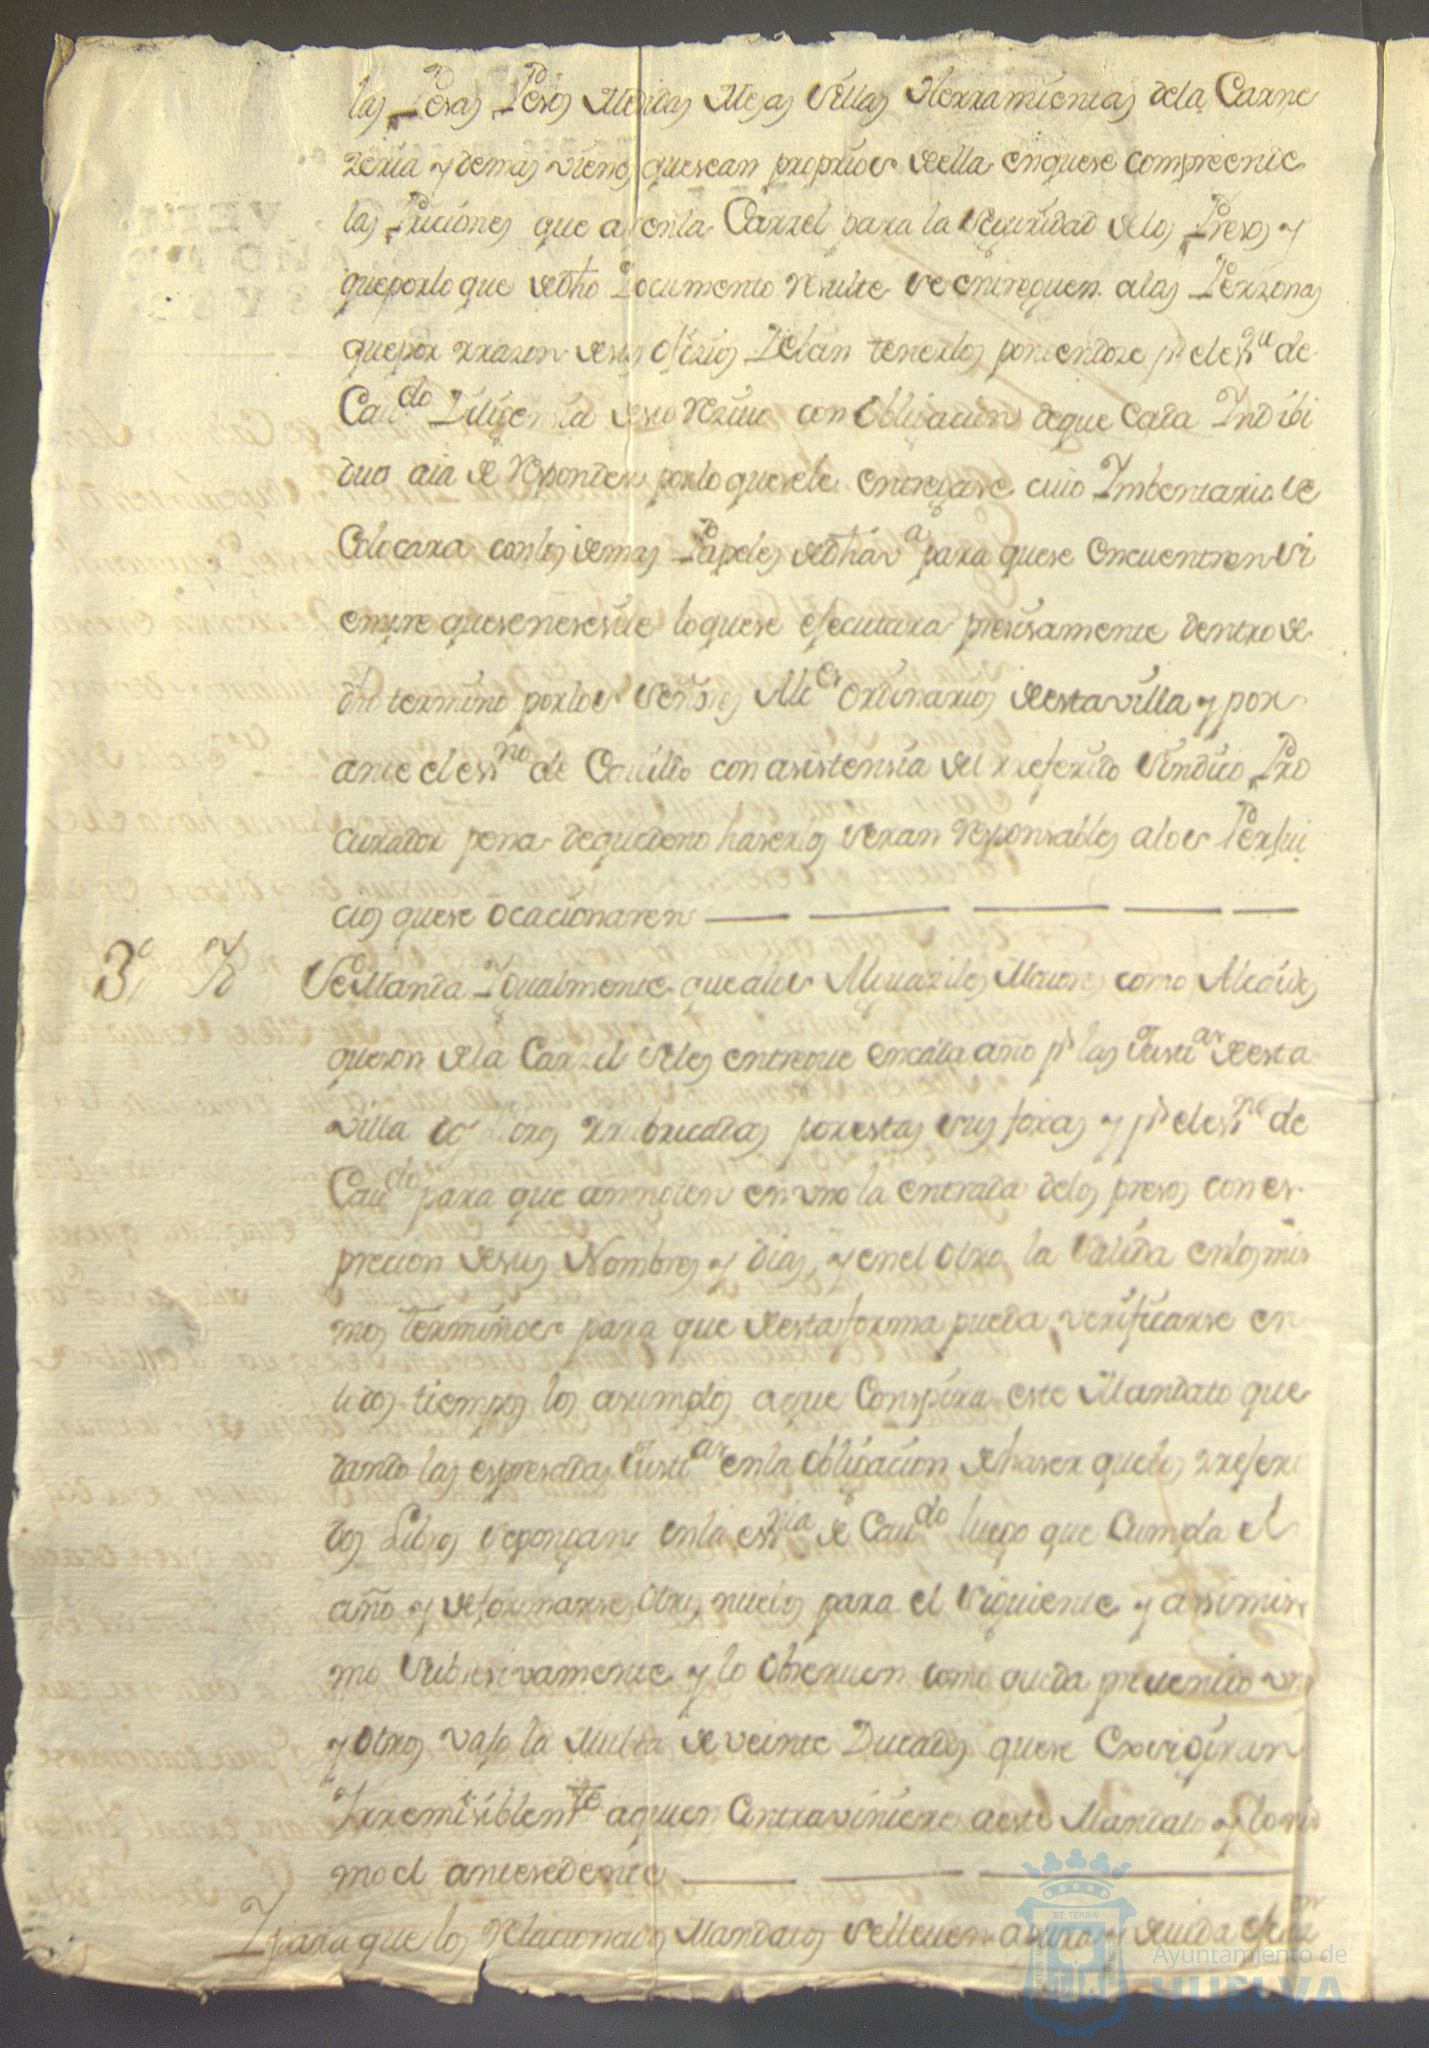 las Pesas Pesos Medidas Mesas Sillas Herramientas dela Carne
zeria y demas vienes quesean proprios della enquese compreende
las Priciones que ai enla Carzel para la seguridad delos Presos y
queporlo que dedho Documento resulte se entreguen alas Perzonas
quepor rrazon desus ofizios devan tenerlos poniendose pr eless.no de
Cau.do Diligencia desu rezivo con obligacion deque cada Indibi
duo aia de responder porlo quesele entregare cuio Imbentario se
Colocara conlos demas Papeles dedha va para quese encuentren si
empre quesenesesite loquese efecutara presisamente dentro de
dho termino porlos señores Alc.es ordinarios deesta villa y por
ante el ess.no de Cavildo con asistensia del rreferido sindico Pro
curador pena dequedeno haserlo seran responsables alos Perjui
cios quese ocacionaren
3.a Yt Se Manda Igualmente quealos Alguaziles Maiores como Alcaides
queson dela Carzel seles entregue encada año pr las Justi.as deesta
villa dos Libros rrubricados porestas sus foxas y pr eless.no de
Cau.do para que annoten en vno la entrada delos presos con es
precion desus Nombres y dias, y enel otro la salida enlos mis
mos terminos para que deesta forma pueda verificarse en
todos tiempos los asumptos aque Conspira este Mandato que
dando las espresadas Justi.as enla obligacion dehaser quelos rreferi
dos Libros sepongan enla ess.nia de Cau.do luego que Cumpla el
año y deformarse otros nuebos para el siguiente y assimis
mo subsesivamente y lo obseruen como queda preuenido vno
y otros vajo la Multa de veinte Ducados quese Exsigiran
Irremisiblem.te aquien Contraviniere aeste Mandato y lo mis
mo el antesedente
Y para que los relacionados Mandatos selleuen apura y deuida
ET TERRÆ
Ayuntamiento de
HUELVA